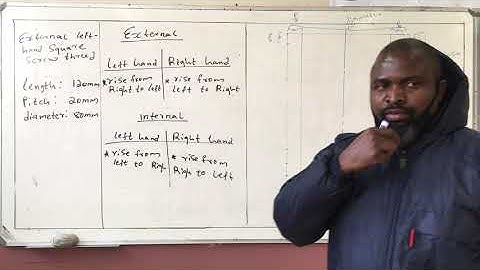 External left-
hand Square
Screw thred
length: 120mm
Pitch: 20mm
diameter: 80mm
External
Left hand
Right hand
* rise from
Right to left
* rise from
left to Right
Internal
left hand
Right hand
* rise from
left to Righ
* rise from
Righ to Left